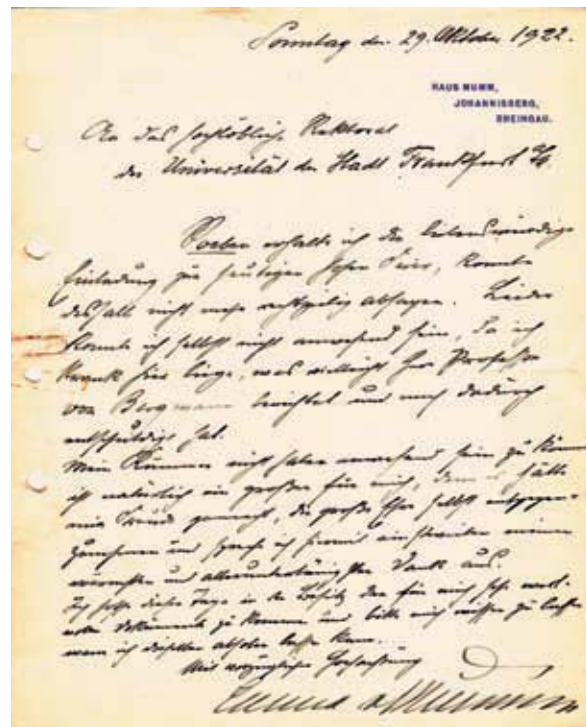 Sonntag den 29. Oktober 1922.
HAUS MUMM,
JOHANNISBERG,
RHEINGAU.
An das hochlöbliche Rektorat
der Universität der Stadt Frankfurt
Soeben erhalte ich die liebenswürdige
Einladung zur heutigen hohen Feier, konnte
deshalb nicht mehr rechtzeitig absagen. Leider
konnte ich selbst nicht anwesend sein, da ich
krank hier liege, was vielleicht Herr Professor
von Bergmann berichtet und mich dadurch
entschuldigt hat.
Mein Kummer nicht haben anwesend sein zu können
ist natürlich ein großer für mich, denn es hätte
mir Freude gemacht, die große Ehre selbst entgegen
zunehmen und spreche ich hiermit einstweilen meinen
wärmsten und alleruntertänigsten Dank aus.
Ich hoffe dieser Tage in den Besitz des für mich sehr wert-
vollen Dokuments zu kommen und bitte mich wissen zu lassen
wann ich dasselbe abholen lassen kann.
Mit vorzüglicher Hochachtung
Emma v Mumm